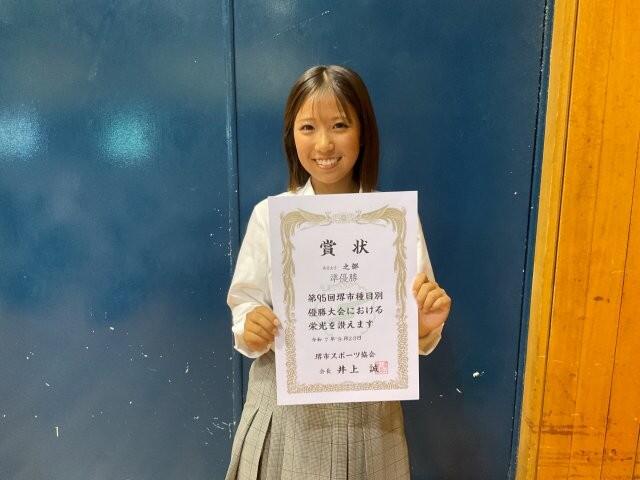 賞状
之部
準優勝
第95回堺市種目別
優勝大会における
栄光を讃えます
令和7年9月20日
堺市スポーツ協会
会長 井上 誠